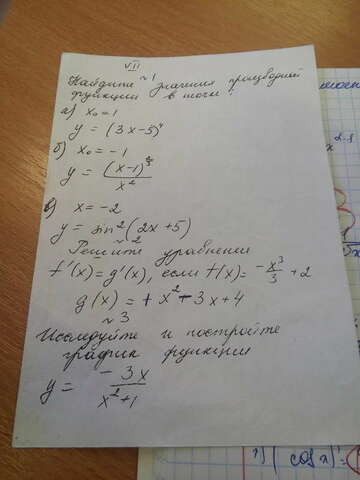 VII
№1
Найдите значения производной
функции в точке:
а) x₀=1
y = (3x-5)⁴
б) x₀ = -1
y = (x-1)³/x²
в) x = -2
y = sin²(2x+5)
№2
Решите уравнение
f'(x)=g'(x), если f(x)= -x³/3 +2
g(x) = + x² - 3x+4
№3
Исследуйте и постройте
график функции
y = - 3x/x²+1